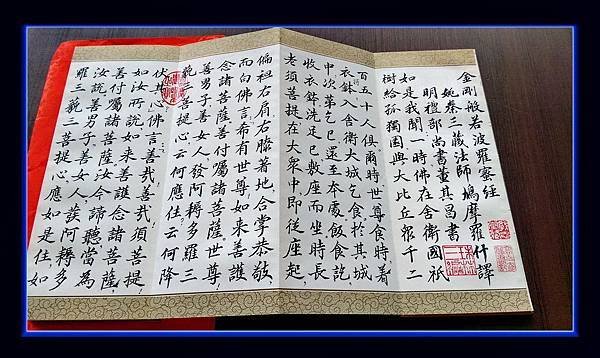 金剛般若波羅蜜經
姚秦三藏法師鳩摩羅什譯
明禮部尚書董其昌書
如是我聞一時佛在舍衛國祇
樹給孤獨園與大比丘眾千二
百五十人俱爾時世尊食時著
衣持鉢入舍衛大城乞食於其城
中次第乞已還至本處飯食訖
收衣鉢洗足已敷座而坐時長
老須菩提在大眾中即從座起,
偏袒右肩右膝著地合掌恭敬,
而白佛言,希有世尊如來善護
念諸菩薩善付囑諸菩薩,世尊,
善男子善女人,發阿耨多羅三
藐三菩提心,云何應住云何降
伏其心,佛言善哉善哉,須菩提,
如汝所說如來善護念諸菩薩,
善付囑諸菩薩,汝今諦聽當為
汝說善男子,善女人,發阿耨多
羅三藐三菩提心,應如是住,如